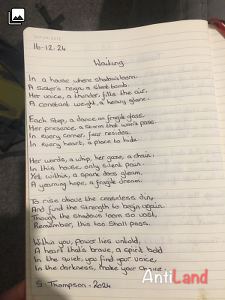 16-12-24
Waiting
In a house where shadows loom
A Sister's reign, a silent bomb.
Her voice, a thunder, fills the air,
A constant weight, a heavy glare.
Each step, a dance on fragile glass.
Her presence, a storm that won't pass.
In every corner, fear resides.
In every heart, a place to hide.
Her words, a whip, her gaze, a chain.
In this house, only silent pain.
Yet within, a spark does gleam,
A yearning hope, a fragile dream.
To rise above the ceaseless din,
And find the strength to begin again.
Though the shadows loom so vast,
Remember, this too shall pass.
Within you, power lies untold,
A heart that's brave, a spirit bold
In the quiet, you find your voice,
In the darkness, make your choice.
S. Thompson - 2024
AntiLand